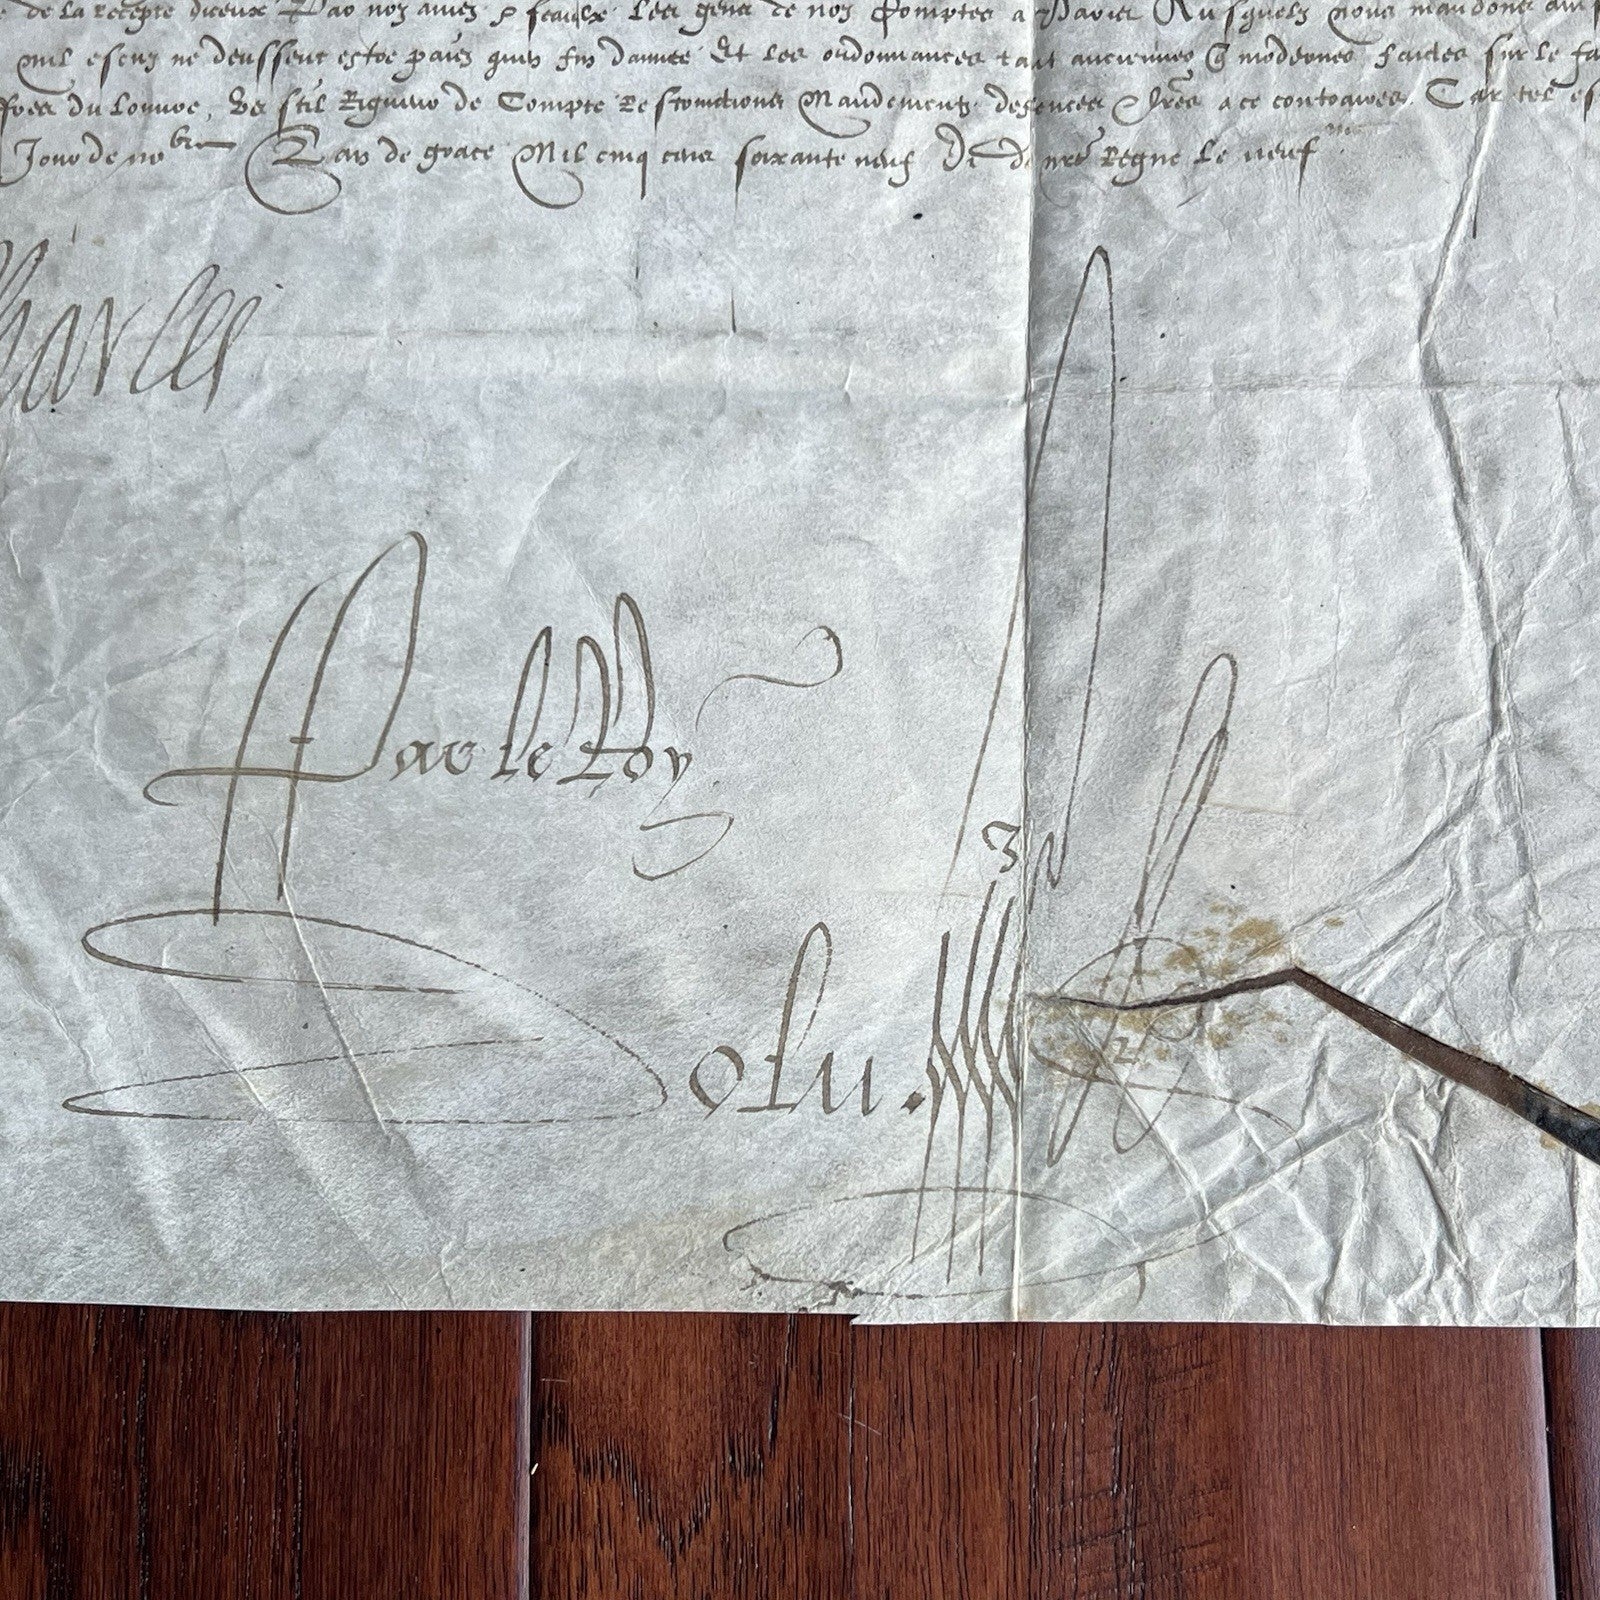 de la recepte diceux Par noz amez & feaulx les gens de noz Comptes a Paris Ausquelz nous mandons ains
mil escuz ne deussent estre paiez quen fin dannee Et les ordonnances tant anciennes q modernes faictes sur le fa
fres du Louvre, stil Rigueur de Compte Restrinctions Mandemens defences & lres a ce contraires. Car tel es
Jour de nobre Lan de grace Mil cinq cens soixante neuf Et de nre Regne le neufme
Charles
Par le Roy
Dolu.